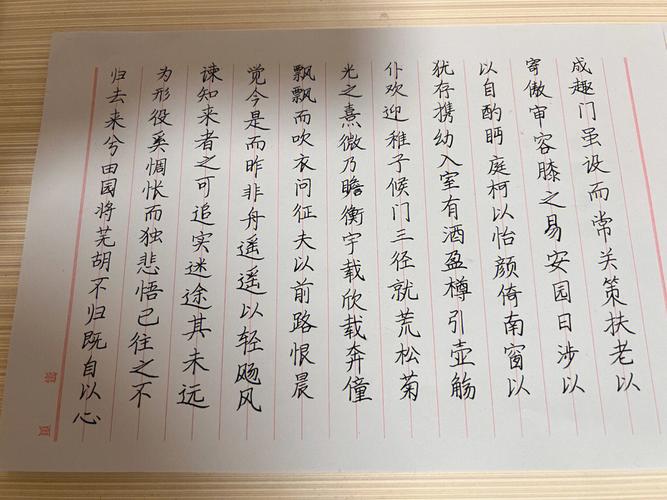 归去来兮田园将芜胡不归既自以心
为形役奚惆怅而独悲悟已往之不
谏知来者之可追实迷途其未远
觉今是而昨非舟遥遥以轻飏风
飘飘而吹衣问征夫以前路恨晨
光之熹微乃瞻衡宇载欣载奔僮
仆欢迎稚子候门三径就荒松菊
犹存携幼入室有酒盈樽引壶觞
以自酌眄庭柯以怡颜倚南窗以
寄傲审容膝之易安园日涉以
成趣门虽设而常关策扶老以
第 页